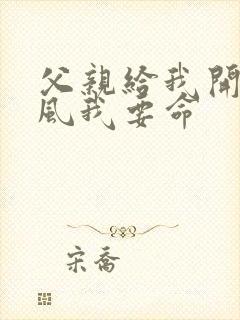 父親給我開
風我要命
宋喬